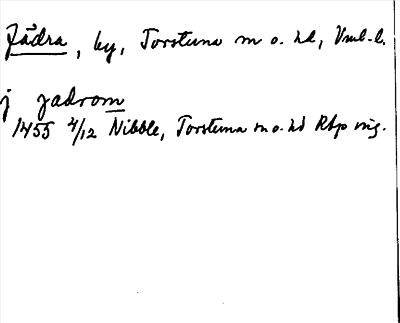 Jädra, by, Torstuna sn o. hd, Vml. l.
j jadrom
1455 4/12 Nibble, Torstuna sn o. hd Rbp